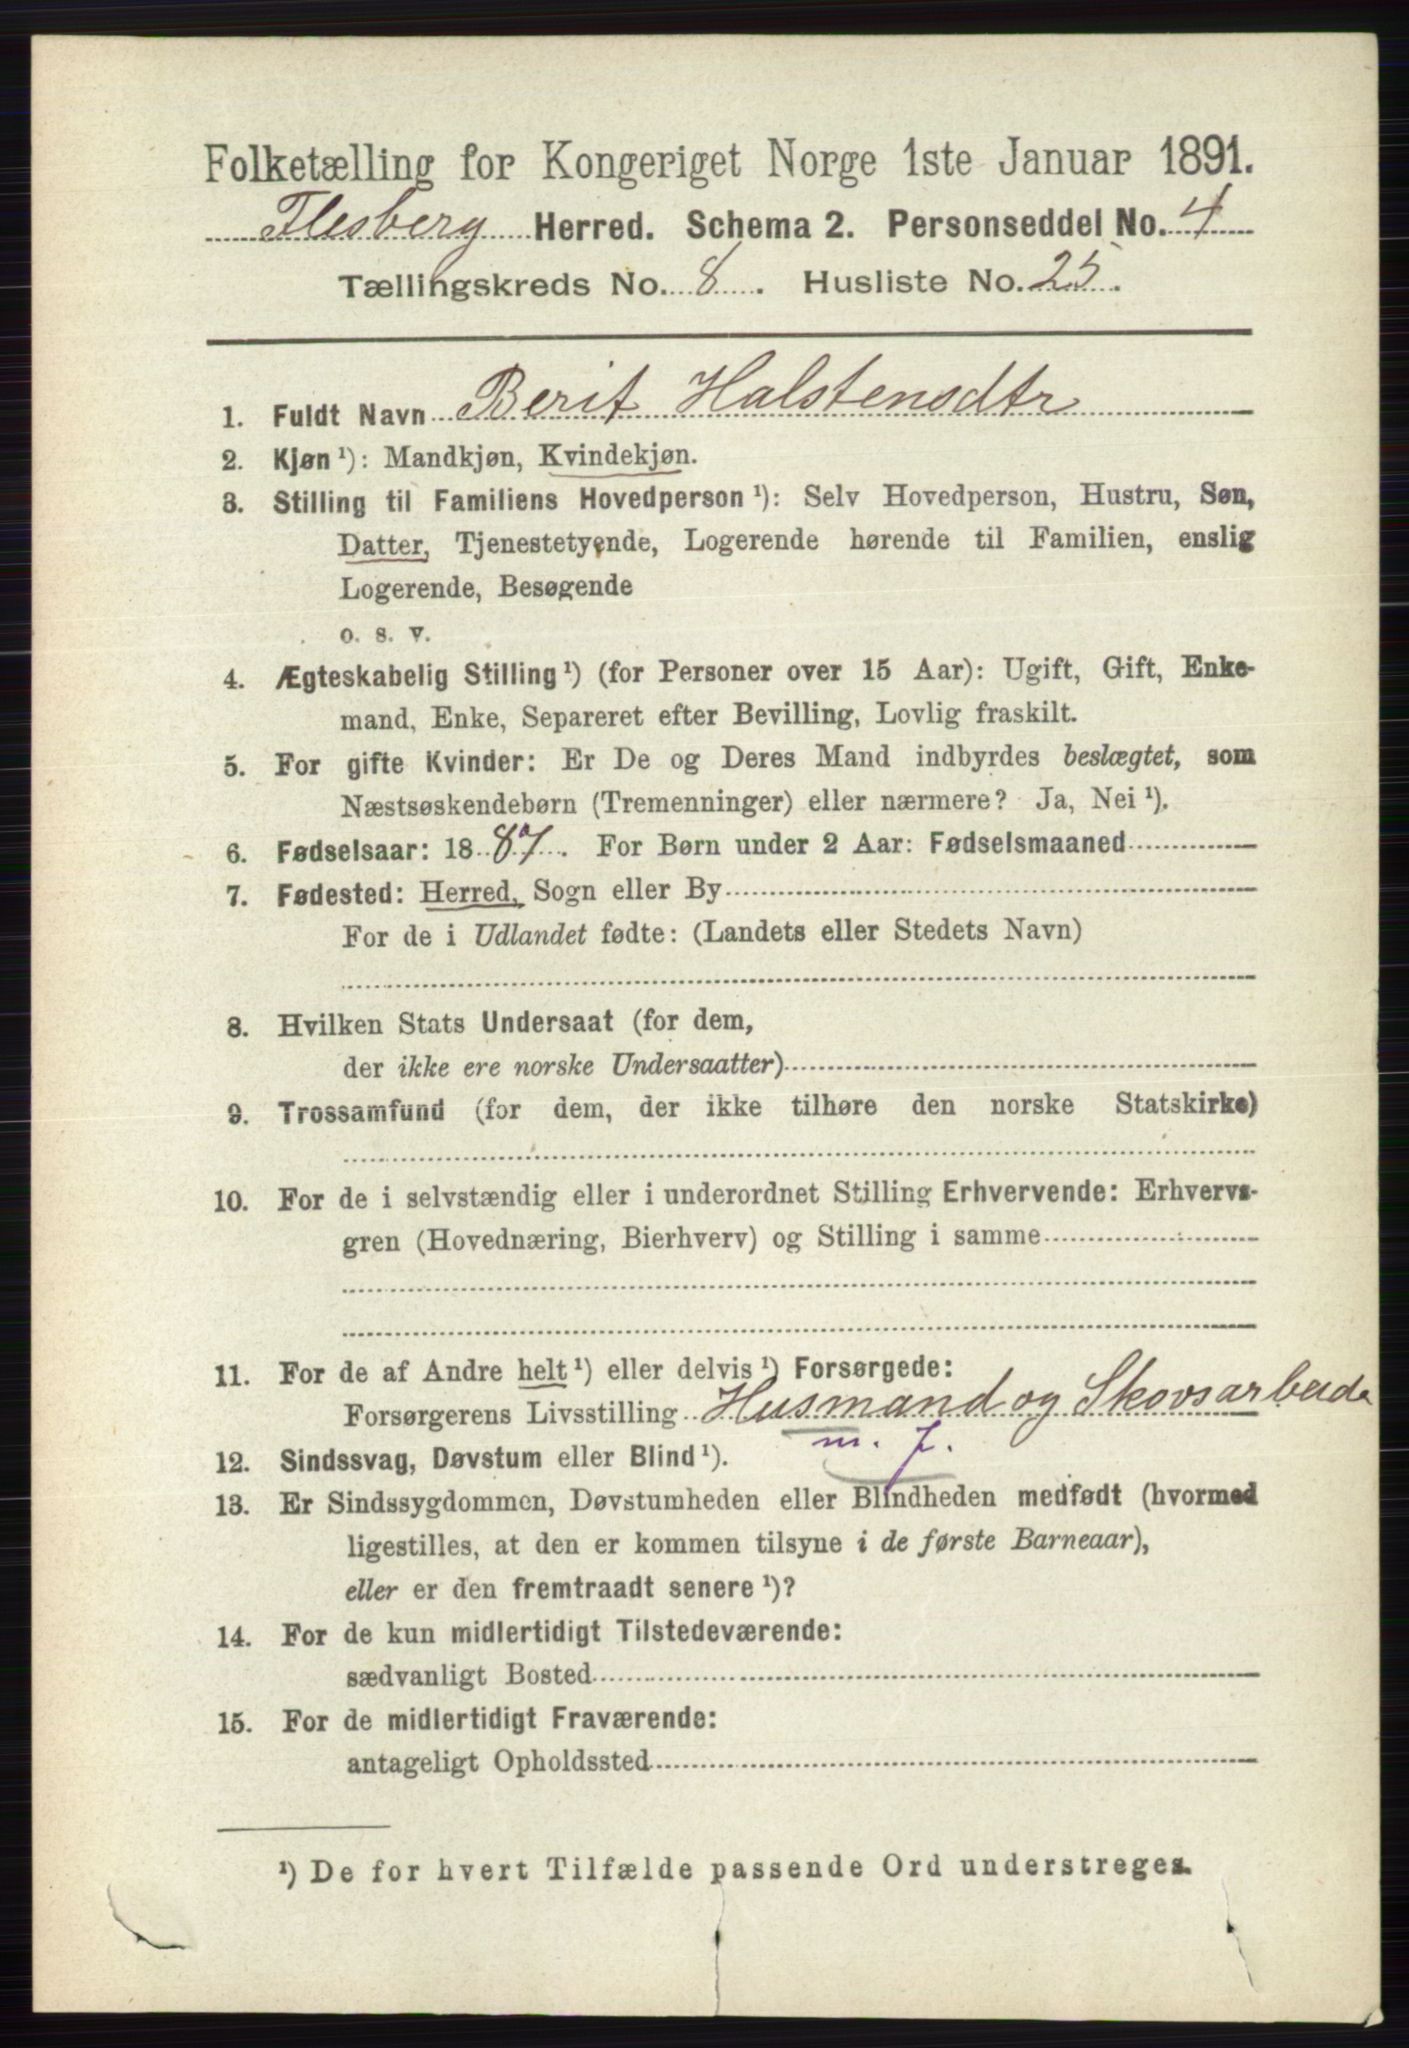 Folketælling for Kongeriget Norge 1ste Januar 1891.
Flesberg Herred. Schema 2. Personseddel No. 4
Tællingskreds No. 8. Husliste No. 25.
1. Fuldt Navn Berit Halstensdtr
2. Kjøn ¹): Mandkjøn, Kvindekjøn.
3. Stilling til Familiens Hovedperson ¹): Selv Hovedperson, Hustru, Søn,
Datter, Tjenestetyende, Logerende hørende til Familien, enslig
Logerende, Besøgende
o. s. v.
4. Ægteskabelig Stilling ¹) (for Personer over 15 Aar): Ugift, Gift, Enke-
mand, Enke, Separeret efter Bevilling, Lovlig fraskilt.
5. For gifte Kvinder: Er De og Deres Mand indbyrdes beslægtet, som
Næstsøskendebørn (Tremenninger) eller nærmere? Ja, Nei ¹).
6. Fødselsaar: 1887. For Børn under 2 Aar: Fødselsmaaned
7. Fødested: Herred, Sogn eller By
For de i Udlandet fødte: (Landets eller Stedets Navn)
8. Hvilken Stats Undersaat (for dem,
der ikke ere norske Undersaatter)
9. Trossamfund (for dem, der ikke tilhøre den norske Statskirke)
10. For de i selvstændig eller i underordnet Stilling Erhvervende: Erhvervs-
gren (Hovednæring, Bierhverv) og Stilling i samme
11. For de af Andre helt ¹) eller delvis ¹) Forsørgede:
Forsørgerens Livsstilling Husmand og Skovsarbeide
m. J.
12. Sindssvag, Døvstum eller Blind ¹).
13. Er Sindssygdommen, Døvstumheden eller Blindheden medfødt (hvormed
ligestilles, at den er kommen tilsyne i de første Barneaar),
eller er den fremtraadt senere ¹)?
14. For de kun midlertidigt Tilstedeværende:
sædvanligt Bosted
15. For de midlertidigt Fraværende:
antageligt Opholdssted
¹) De for hvert Tilfælde passende Ord understreges.